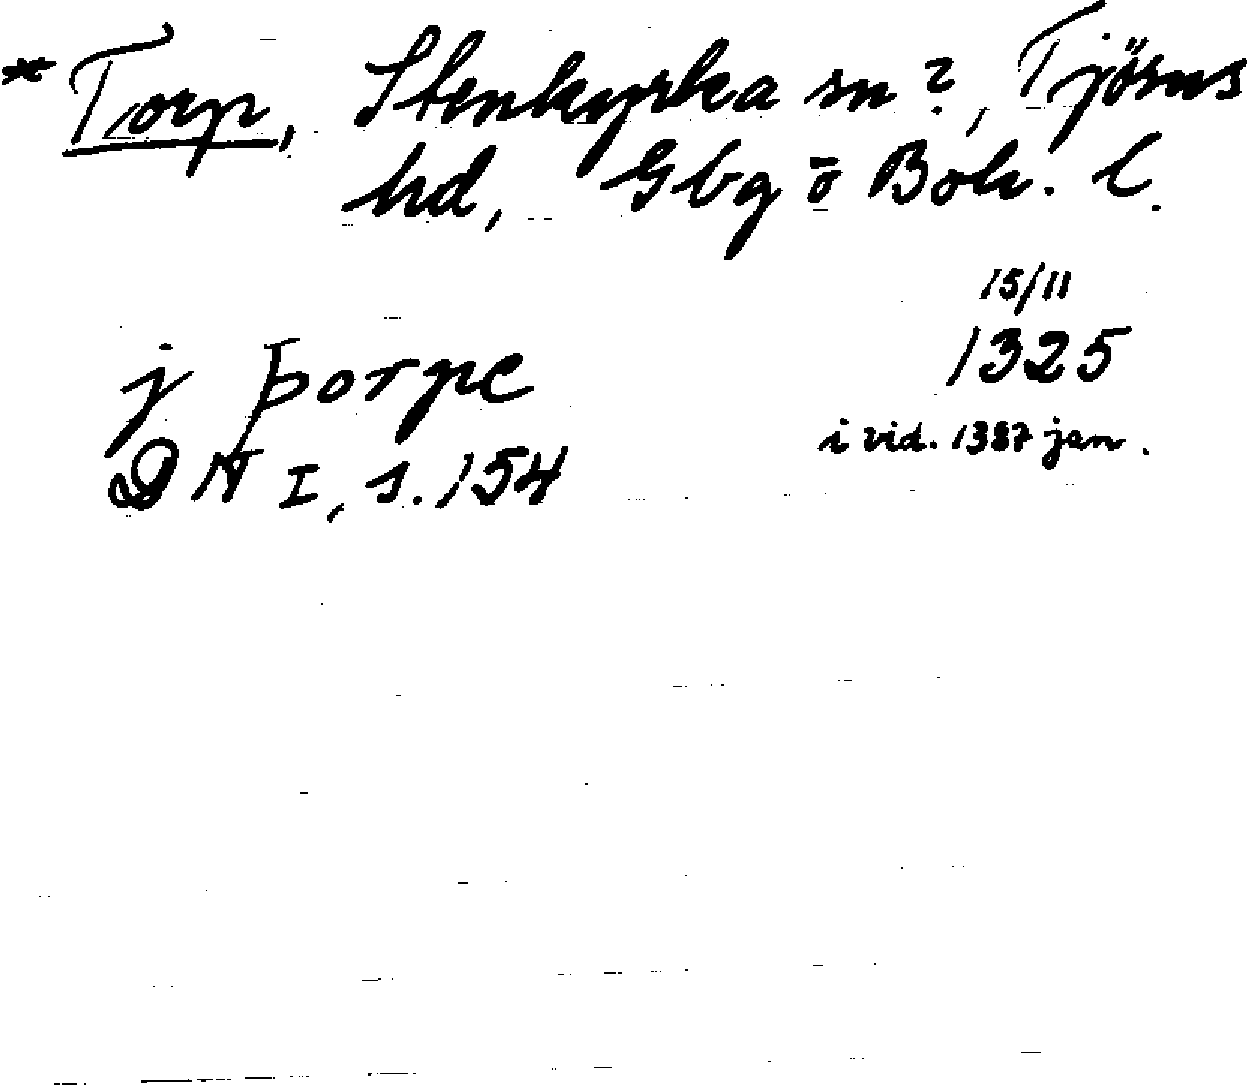 * Torp, Stenkyrka sn?, Tjörns
hd, Gbg o Boh. l.
15/11
j þorpe 1325
i vid. 1387 jan.
DN I, s. 154